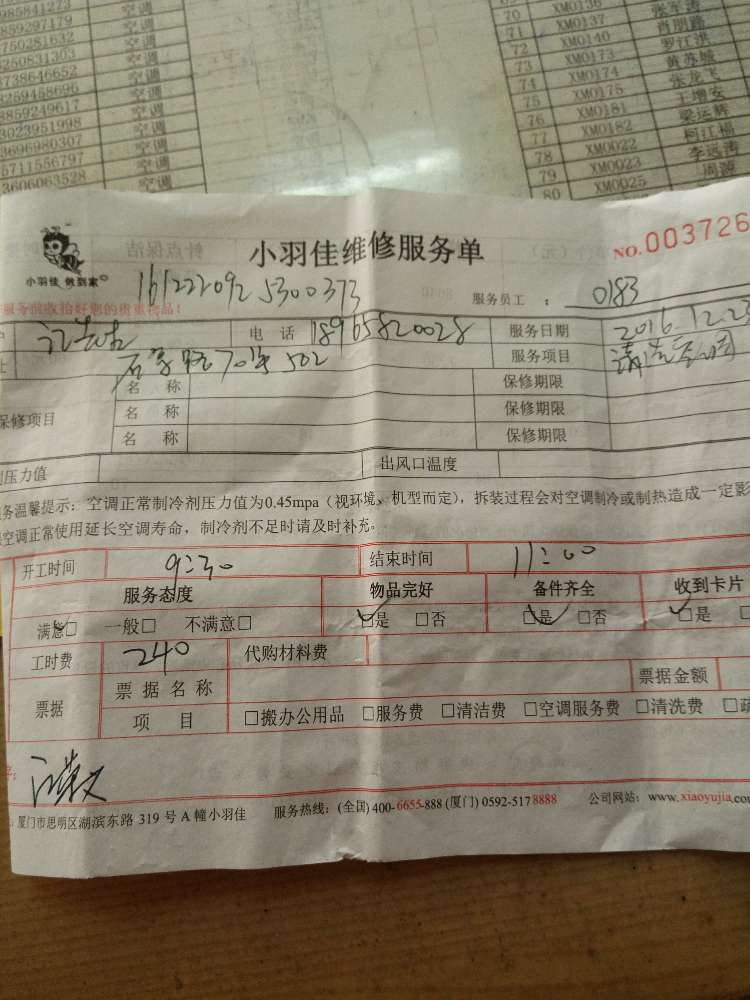 985841273 空调
859297179 空调
750281632 空调
8250831303 空调
8738646652 空调
8259458696 空调
8859249617 空调
3023951998 空调
3696980307 空调
5711556797 空调
3606063528 空调
70 XM0136 张军涛
71 XM0137 肖朋路
72 XM0140 罗江洪
73 XM0173 黄苏城
74 XM0174 张龙飞
75 XM0175 王增安
76 XM0181 梁运辉
77 XM0182 柯江福
78 XM0022 李远涛
79 XM0023 周源
80 XM0025
小羽佳 做到家
小羽佳维修服务单
NO.003726
161222092 5300373
服务员工 : 0183
服务前收拾好您的贵重物品!
电话 18965820028 服务日期 2016.12.23
70号502 服务项目 清洗
保修项目 名称 保修期限
名称 保修期限
名称 保修期限
压力值 出风口温度
务温馨提示:空调正常制冷剂压力值为0.45mpa(视环境、机型而定),拆装过程会对空调制冷或制热造成一定影
空调正常使用延长空调寿命,制冷剂不足时请及时补充。
开工时间 9:30 结束时间 11:00
服务态度 物品完好 备件齐全 收到卡片
满意□ 一般□ 不满意□ □是 □否 □是 □否 □是 □
工时费 240 代购材料费
票据 票据名称 票据金额
项目 □搬办公用品 □服务费 □清洁费 □空调服务费 □清洗费 □疏
厦门市思明区湖滨东路 319 号 A 幢小羽佳 服务热线:(全国) 400-6655-888 (厦门) 0592-5178888 公司网站:www.xiaoyujia.com